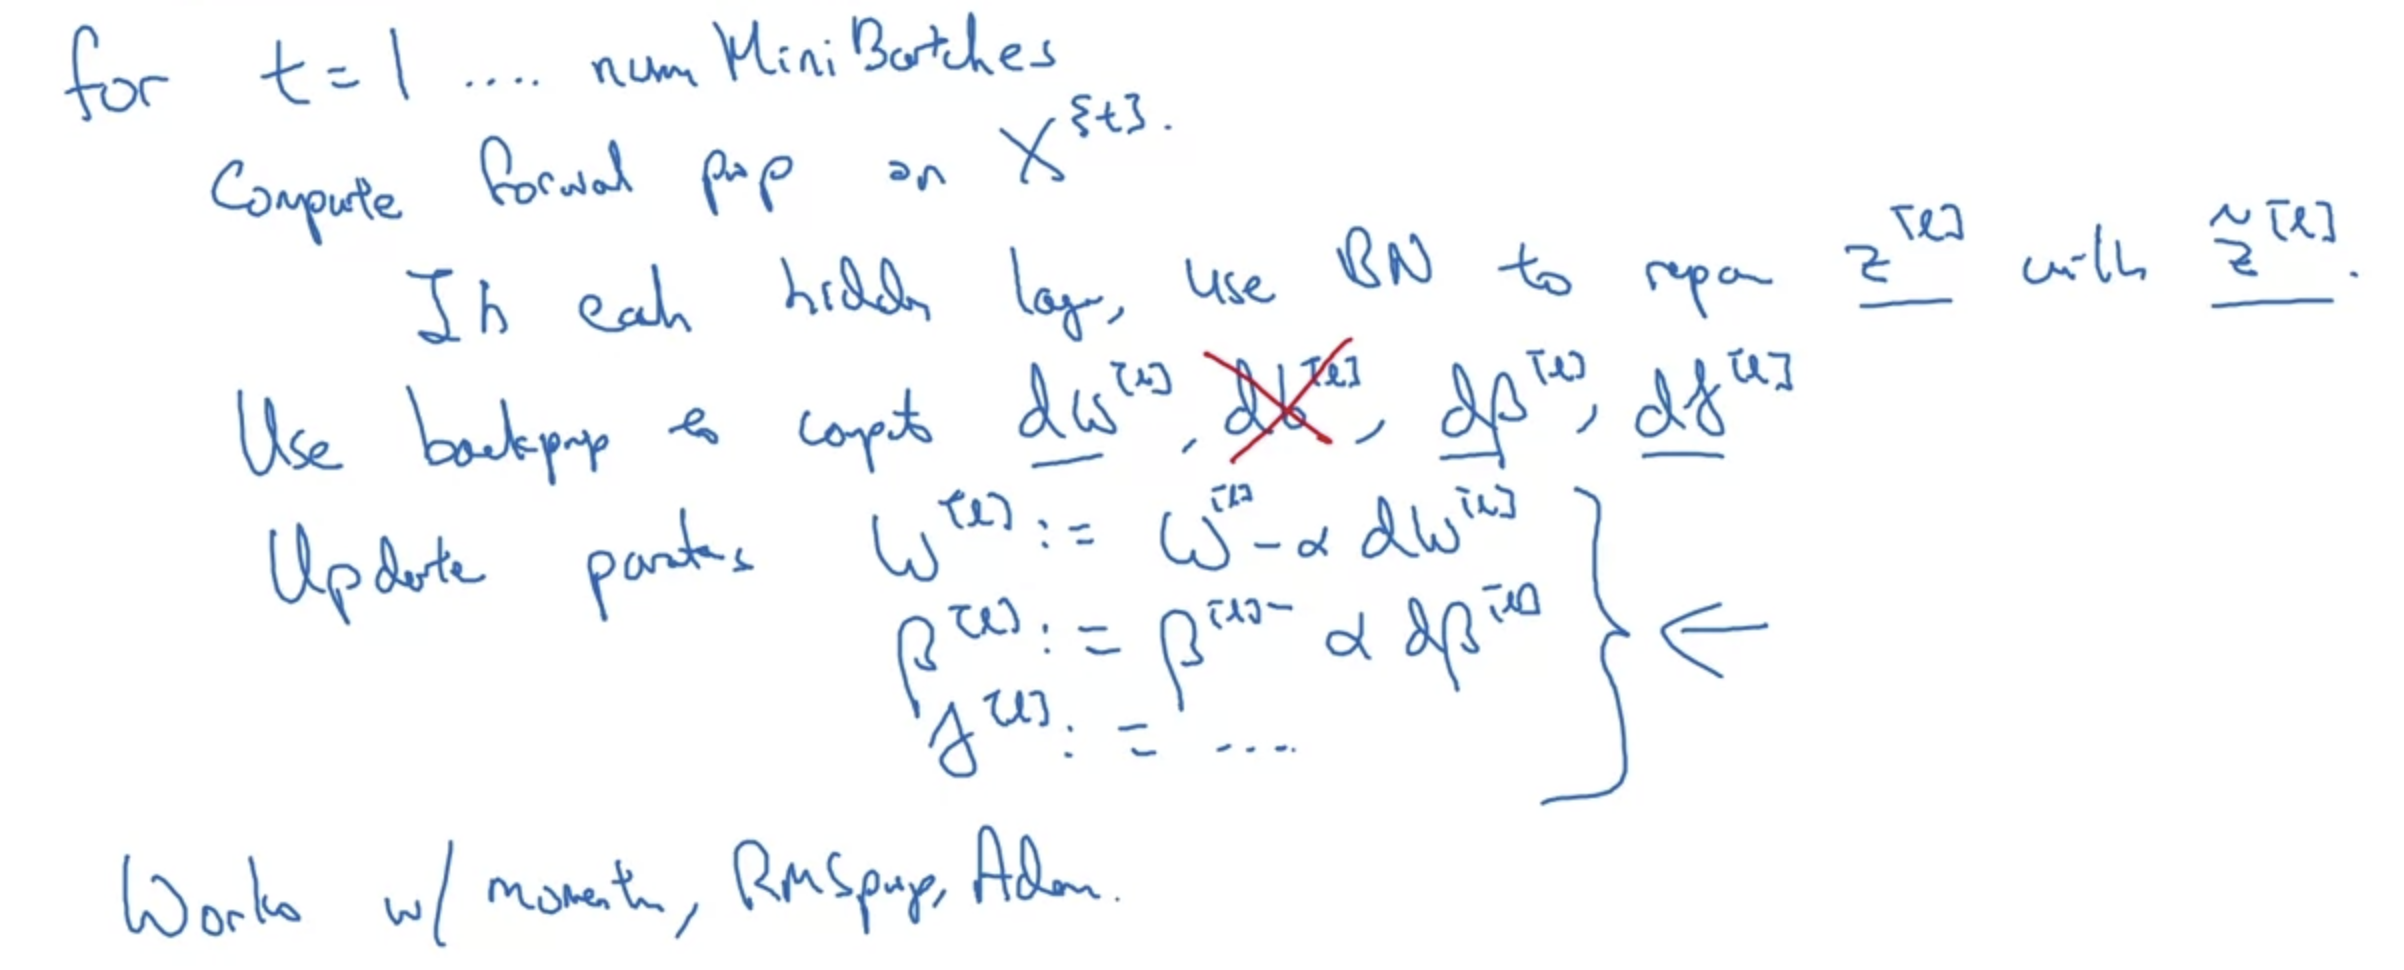 for t = 1 .... num Mini Batches
Compute forwal prop on X^{t}.
In eah hidden lay, use BN to repa z^[l] with z̃^[l].
Use backprop to compt dw^[l], db^[l], dβ^[l], dγ^[l]
Update parates W^[l] := W^[l] - α dW^[l]
β^[l] := β^[l] - α dβ^[l]
γ^[l] := ....
Works w/ moment, RMSprop, Adam.